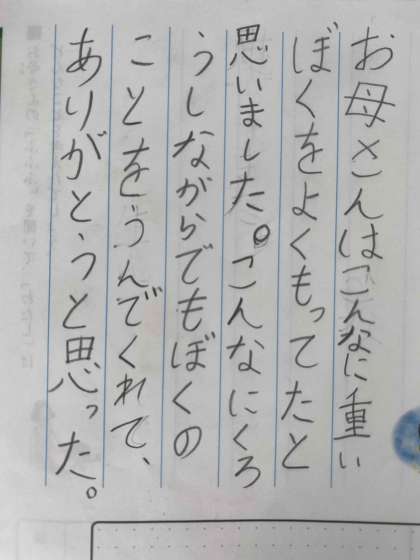 お母さんはこんなに重い
ぼくをよくもってたと
思いました。こんなにくろ
うしながらでもぼくの
ことをうんでくれて、
ありがとうと思った。